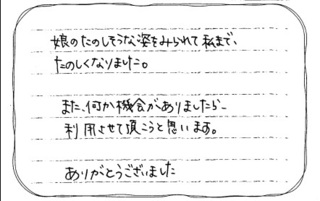 娘のたのしそうな姿をみられて私まで、
たのしくなりました。
また、何か機会がありましたら、
利用させて頂こうと思います。
ありがとうございました